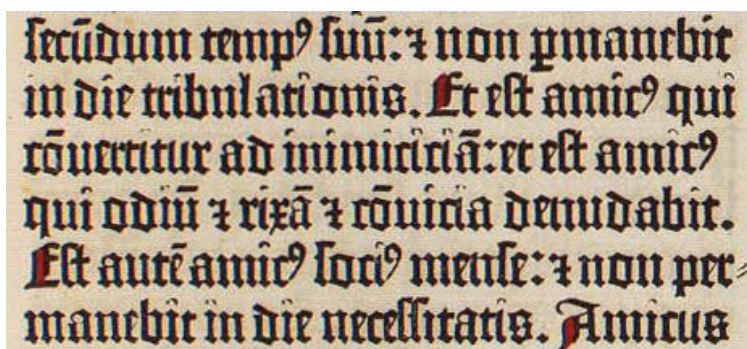 ſecūdum tempꝰ ſuū: ⁊ non ꝑmanebit
in die tribulationis. Et eſt amicꝰ qui
cōuertitur ad inimiciciā: et eſt amicꝰ
qui odiū ⁊ rixā ⁊ cōuicia denudabit.
Eſt autē amicꝰ ſociꝰ menſe: ⁊ non per⸗
manebit in die neceſſitatis. Amicus